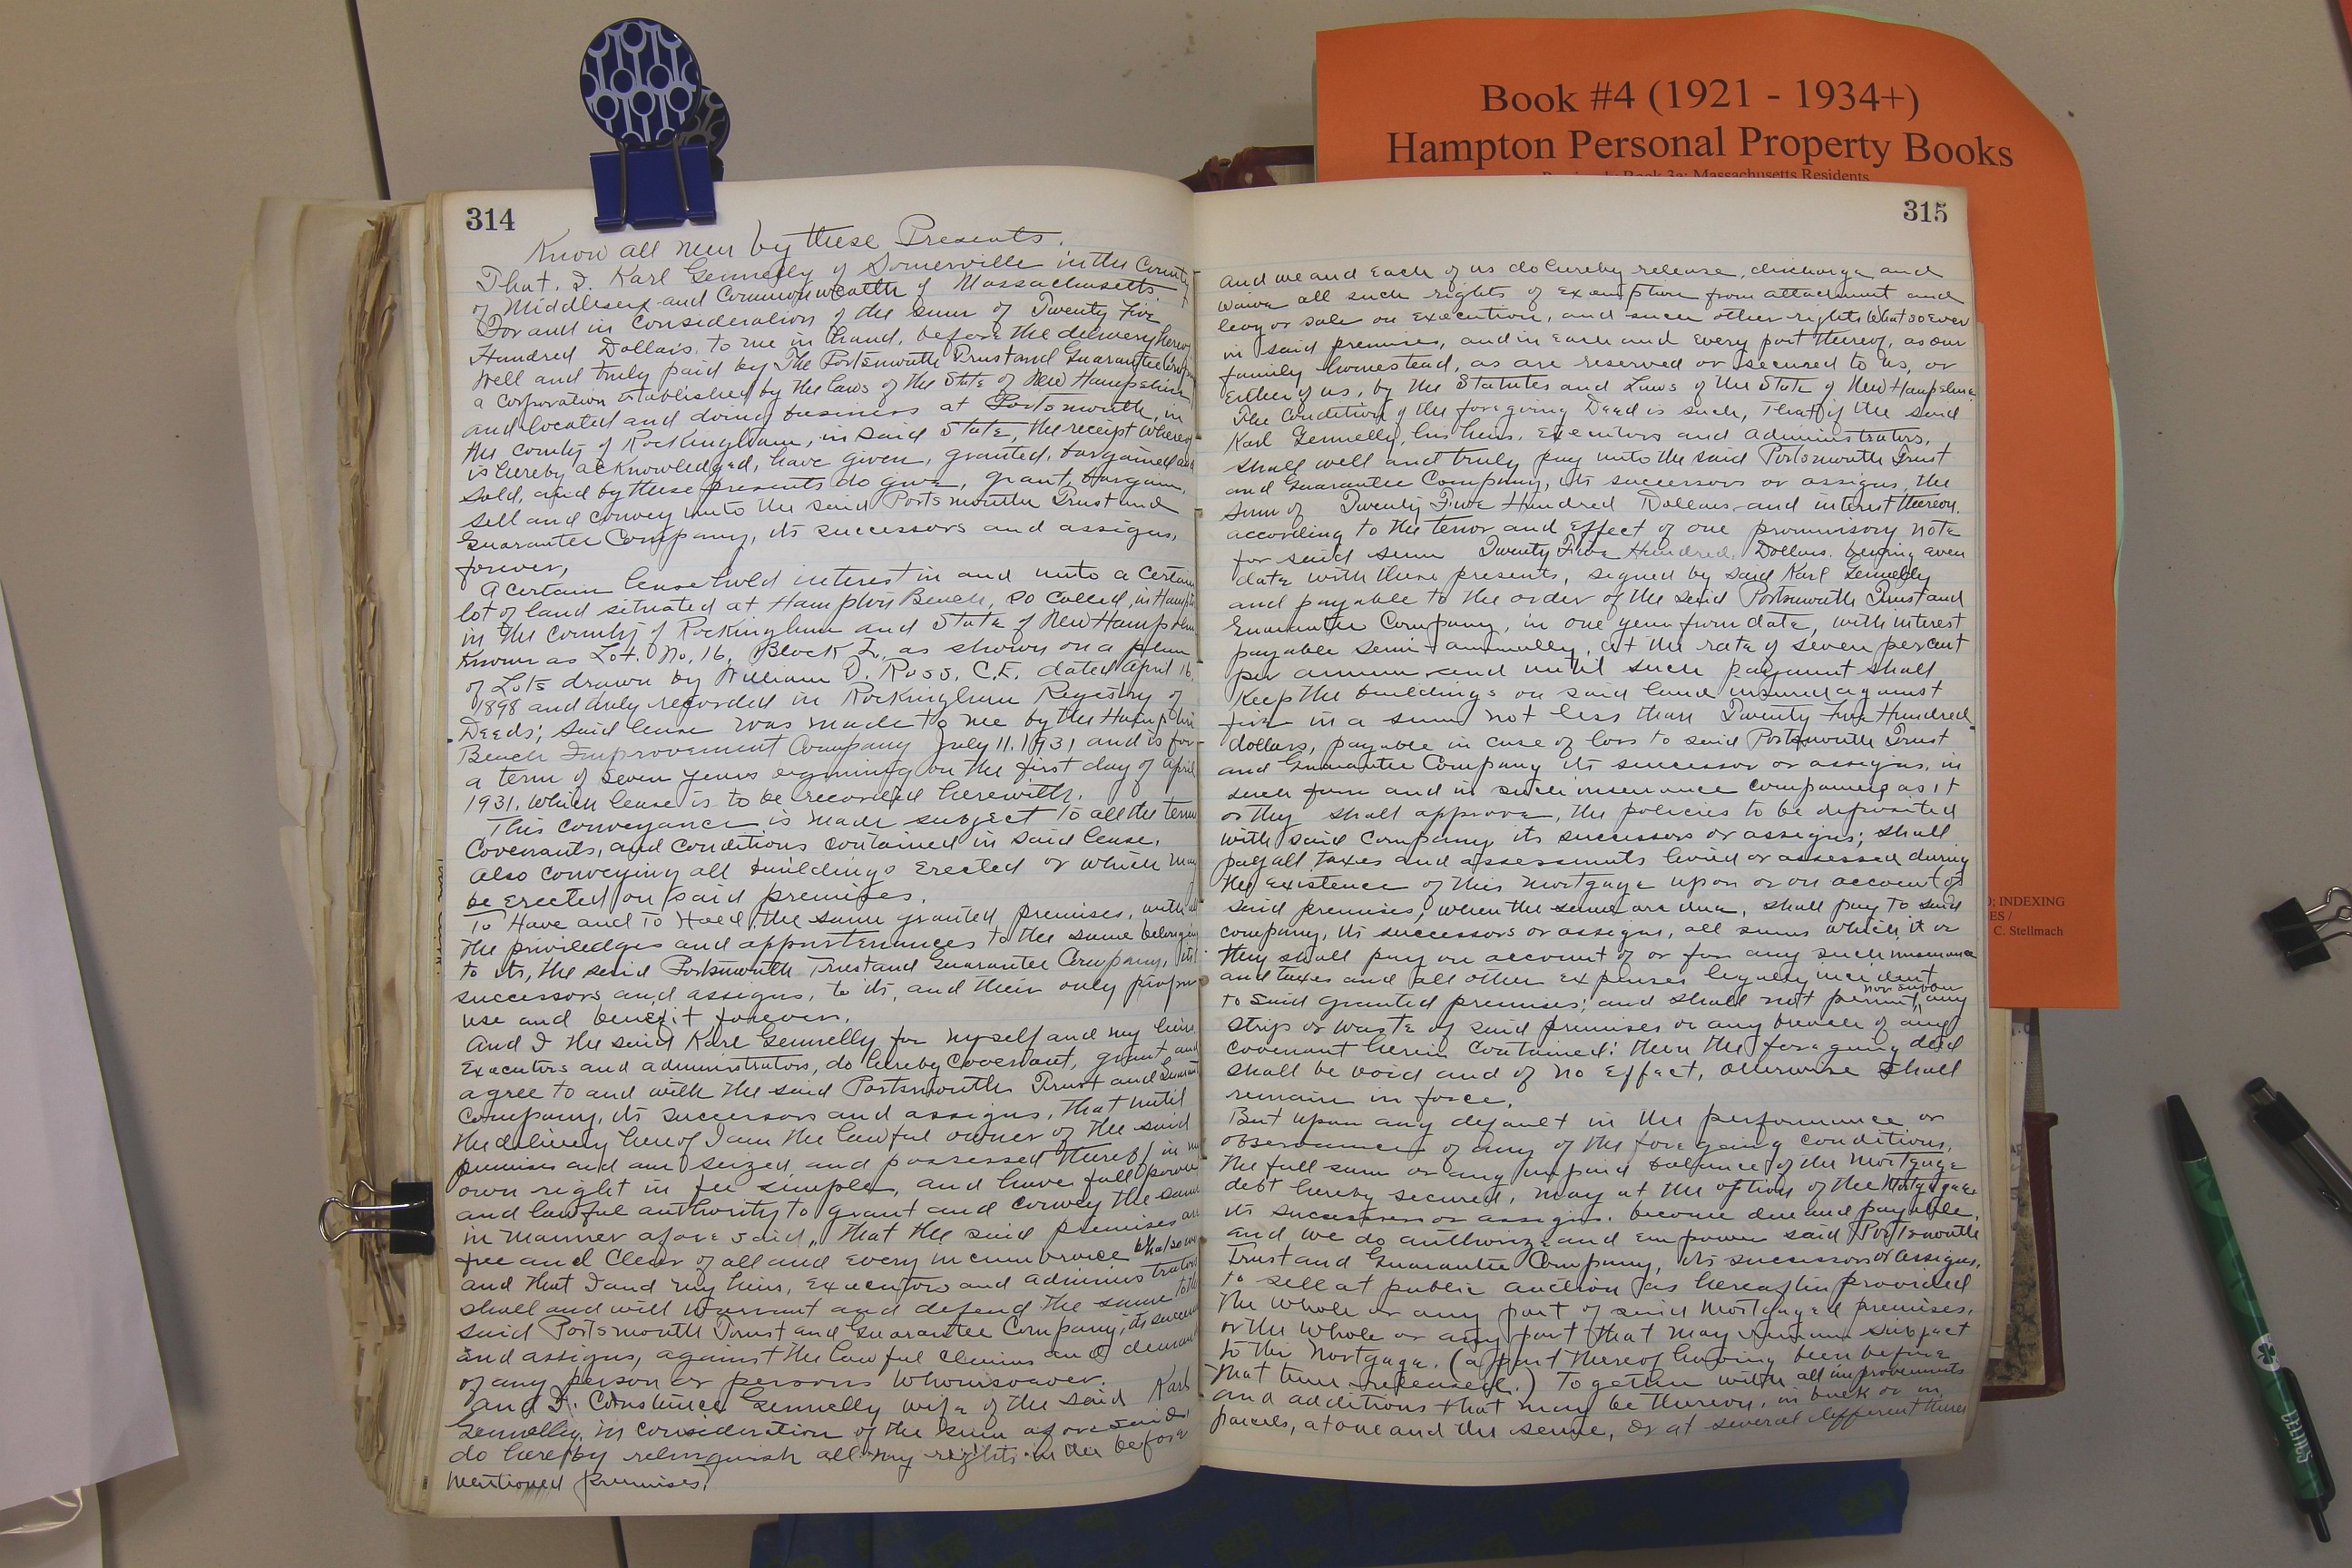 Book #4 (1921 - 1934+)
Hampton Personal Property Books
Book 3a: Massachusetts Residents
314
Know all men by these Presents.
That, I. Karl Gennelly of Somerville in the County
of Middlesex and Commonwealth of Massachusetts.
For and in consideration of the sum of Twenty Five
Hundred Dollars. to me in hand, before the delivery hereof
well and truly paid by The Portsmouth Trust and Guarantee
a corporation established by the laws of the State of New Hampshire
and located and doing business at Portsmouth, in
the county of Rockingham, in said State, the receipt whereof
is hereby acknowledged, have given, granted, bargained and
sold, and by these presents do give, grant, bargain,
sell and convey unto the said Portsmouth Trust and
Guarantee Company, its successors and assigns,
forever,
A certain leasehold interest in and unto a certain
lot of land situated at Hampton Beach, so called, in
in the county of Rockingham and State of New Hampshire
Known as Lot. No. 16, Block I, as shown on a plan
of Lots drawn by William D. Ross. C.E. dated April 16,
1898 and duly recorded in Rockingham Registry of
Deeds; said lease was made to me by the
Beach Improvement Company July 11. 1931 and is for
a term of seven years on the first day of April
1931. which lease is to be recorded herewith.
This conveyance is made subject to all the term
Covenants, and conditions contained in said lease.
Also conveying all buildings erected or which may
be erected on said premises.
To Have and To Hold, the same granted premises, with all
the priviledges and appurtenances to the same belonging
to its, the said Portsmouth Trust and Guarantee Company, its
successors and assigns, to its, and their only proper
use and benefit forever.
And I the said Karl Gennelly for myself and my heirs
Executors and administrators, do hereby Covenant, grant and
agree to and with the said Portsmouth Trust and
Company, its successors and assigns, that until
the delivery hereof I am the lawful owner of the said
premises and am seized and possessed thereof in my
own right in fee simple, and have full power
and lawful authority to grant and convey the same
in manner aforesaid, that the said premises are
free and Clear of all and every incumbrance whatsoever
and that I and my heirs, executors and administrators
shall and will warrant and defend the same to the
said Portsmouth Trust and Guarantee Company, its
and assigns, against the lawful claims and demand
of any person or persons whomsoever.
And I. Constance Gennelly wife of the said Karl
Gennelly, in consideration of the sum aforesaid
do hereby relinquish all my rights in the before
Mentioned premises.
315
And we and Each of us do hereby release, discharge and
waive all such rights of exemption from attachment and
levy or sale on execution, and such other rights whatsoever
in said premises, and in each and every part thereof, as our
family homestead, as are reserved or secured to us, or
either of us, by the Statutes and Laws of the State of New Hampshire
The Condition of the foregoing Deed is such, That if the said
Karl Gennelly, his heirs, executors and administrators,
shall well and truly pay unto the said Portsmouth Trust
and Guarantee Company, its successors or assigns, the
sum of Twenty Five Hundred Dollars and interest thereon.
according to the tenor and effect of one promissory note
for said sum Twenty Five Hundred. Dollars. bearing even
date with these presents, signed by said Karl Gennelly
and payable to the order of the said Portsmouth Trust and
Guarantee Company, in one year from date, with interest
payable semi-annually, at the rate of seven percent
per annum and until such payment shall
Keep the buildings on said land insured against
fire in a sum not less than Twenty Five Hundred
dollars, payable in case of loss to said Portsmouth Trust
and Guarantee Company its successor or assigns, in
such form and in such insurance companies as it
or they shall approve, the policies to be deposited
with said Company its successors or assigns; shall
pay all taxes and assessments levied or assessed during
the existence of this mortgage upon or on account of
said premises, when the same are due, shall pay to said
company, its successors or assigns, all sums which it or
they shall pay on account of or for any such insurance
and taxes and all other expenses legally incident
nor suffer
to said granted premises; and shall not permit, any
strip or waste of said premises or any breach of any
covenant herein contained: then the foregoing deed
shall be void and of no effect, otherwise shall
remain in force.
But upon any default in the performance or
observance of any of the foregoing conditions,
the full sum or any unpaid balance of the Mortgage
debt hereby secured, may at the option of the Mortgagee
its successors or assigns. become due and payable.
and we do authorize and Empower said Portsmouth
Trust and Guarantee Company, its successors or assigns,
to sell at public auction (as hereafter provided
the whole or any part of said Mortgaged premises,
or the whole or any part that may remain subject
to the Mortgage. (a part thereof having been before
that time released.) Together with all improvements
and additions that may be thereon, in bulk or in
parcels, at one and the same, or at several different times
; INDEXING
C. Stellmach
CELTICS